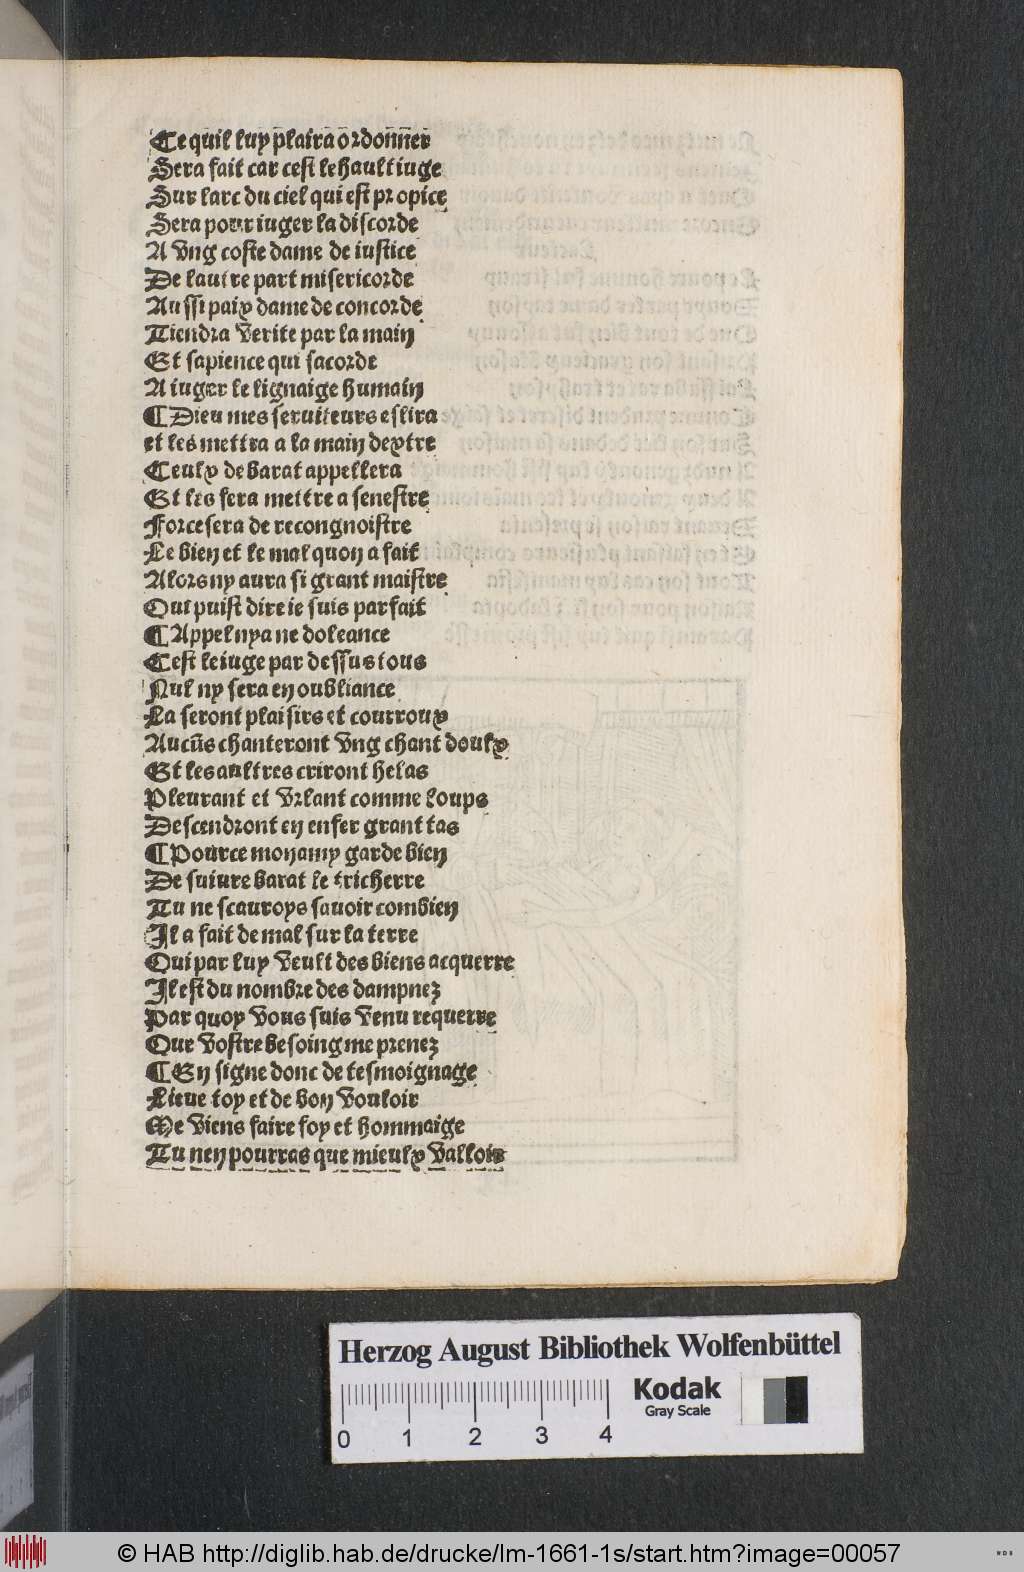 Ce quil luy plaira ordonner
Sera fait car cest le hault iuge
Sur larc du ciel qui est propice
Sera pour iuger la discorde
A vng coste dame de iustice
De lautre part misericorde
Aussi paix dame de concorde
Tiendra verite par la main
Et sapience qui sacorde
A iuger le lignaige humain
¶ Dieu mes seruiteurs eslira
et les mettra a la main dextre
Ceulx de barat appellera
Et les fera mettre a senestre
Force sera de recongnoistre
Le bien et le mal quon a fait
Alors ny aura si grant maistre
Qui puist dire ie suis parfait
¶ Appel nya ne doleance
Cest le iuge par dessus tous
Nul ny sera en oubliance
La seront plaisirs et courroux
Aucūs chanteront vng chant doulx
Et les aultres criront helas
Pleurant et vrlant comme loups
Descendront en enfer grant tas
¶ Pource mon amy garde bien
De suiure barat le tricherre
Tu ne scauroys sauoir combien
Il a fait de mal sur la terre
Qui par luy veult des biens acquerre
Il est du nombre des dampnez
Par quoy vous suis venu requerre
Our vostre besoing me prenez
¶ En signe donc de tesmoignage
Lieue toy et de bon vouloir
Me viens faire foy et hommaige
Tu nen pourras que mieulx valloir
Herzog August Bibliothek Wolfenbüttel
Kodak
Gray Scale
0 1 2 3 4
© HAB http://diglib.hab.de/drucke/lm-1661-1s/start.htm?image=00057